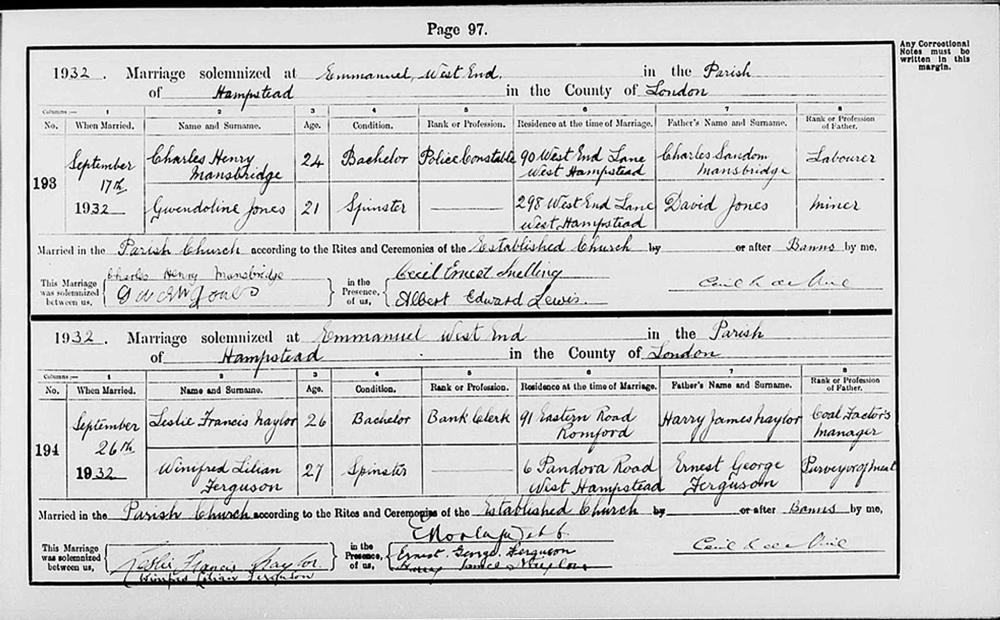 Page 97.
Any Correctional
Notes must be
written in this
margin.
1932. Marriage solemnized at Emmanuel, West End. in the Parish
of Hampstead in the County of London
Columns:— 1 2 3 4 5 6 7 8
No. When Married. Name and Surname. Age. Condition. Rank or Profession. Residence at the time of Marriage. Father's Name and Surname. Rank or Profession of Father.
193 September 17th 1932 Charles Henry Mansbridge 24 Bachelor Police Constable 90 West End Lane West Hampstead Charles Sandom Mansbridge Labourer
Gwendoline Jones 21 Spinster 298 West End Lane West Hampstead David Jones Miner
Married in the Parish Church according to the Rites and Ceremonies of the Established Church by or after Banns by me,
This Marriage was solemnized between us, Charles Henry Mansbridge in the Presence of us, Cecil Ernest Snelling
Jones Albert Edward Lewis.
1932. Marriage solemnized at Emmanuel West End in the Parish
of Hampstead in the County of London
Columns:— 1 2 3 4 5 6 7 8
No. When Married. Name and Surname. Age. Condition. Rank or Profession. Residence at the time of Marriage. Father's Name and Surname. Rank or Profession of Father.
194 September 26th 1932 Leslie Francis Naylor 26 Bachelor Bank Clerk 91 Eastern Road Romford Harry James Naylor Coal Factor's Manager
Winifred Lilian Ferguson 27 Spinster 6 Pandora Road West Hampstead Ernest George Ferguson Purveyor of Meat
Married in the Parish Church according to the Rites and Ceremonies of the Established Church by or after Banns by me,
This Marriage was solemnized between us, Leslie Francis Naylor in the Presence of us, Ernest George Ferguson
Winifred Lilian Ferguson Harry James Naylor